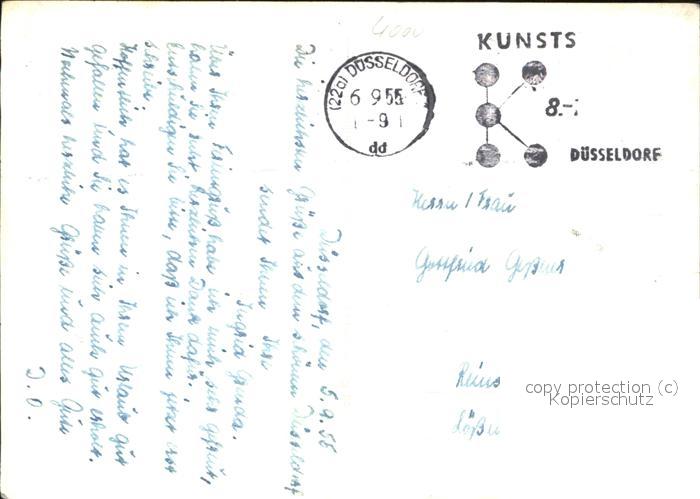 4000
KUNSTS
(22a) DÜSSELDORF
6.9.55
-9
dd
8.-
DÜSSELDORF
Herrn / Frau
Gottfried
copy protection (c)
Kopierschutz
Düsseldorf, den 5.9.55
Die herzlichsten Grüße aus dem schönen Düsseldorf
sendet Ihnen Ihre
Ingrid
Über Ihren Feriengruß habe ich mich sehr gefreut,
haben Sie recht herzlichen Dank dafür.
Entschuldigen Sie bitte, daß ich Ihnen jetzt erst
schreibe.
Hoffentlich hat es Ihnen in Ihrem Urlaub gut
gefallen und Sie haben sich auch gut erholt.
Nochmals herzliche Grüße und alles Gute
D. O.